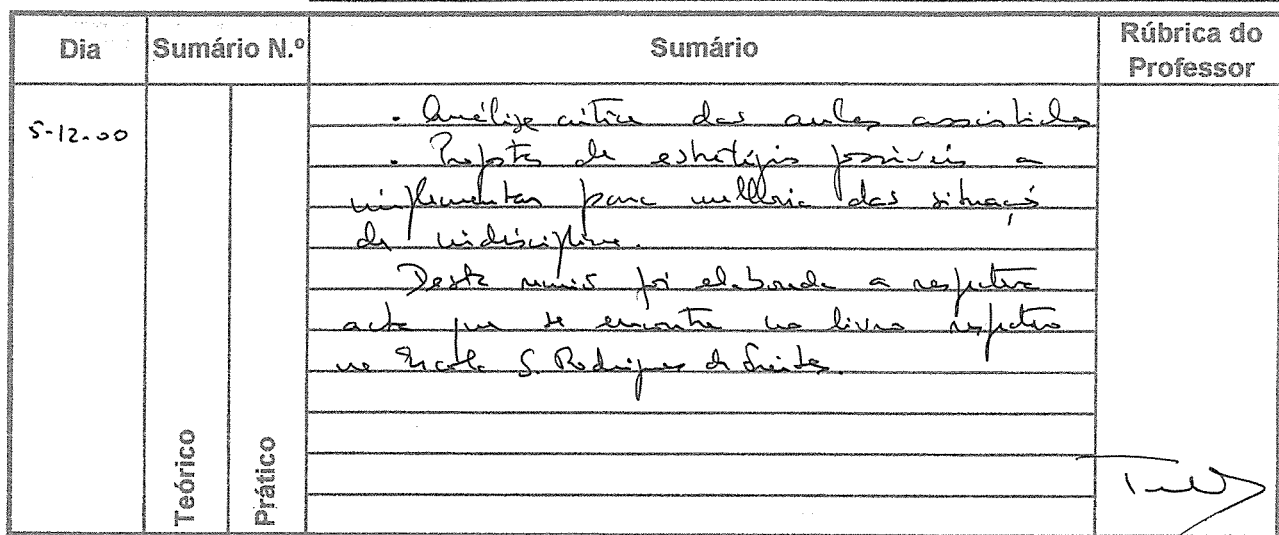 Dia Sumário N.º Sumário Rúbrica do Professor
5-12-00
• Análise crítica das aulas assistidas
• Proposta de estratégias possíveis a
implementar para melhoria das situações
de indisciplina.
Desta reunião foi elaborada a respectiva
acta que se encontra no livro respectivo
na Escola S. Rodrigues de Freitas.
Teórico
Prático